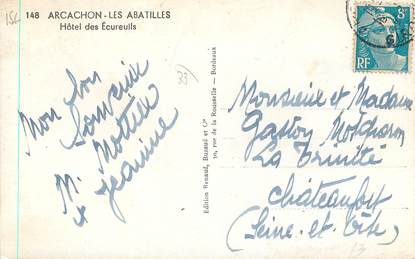 15c
148 ARCACHON - LES ABATILLES
Hôtel des Écureuils
33
Mon bon
Souvenir
M. Mottier
x Jeannine
Edition Renaud, Buzaud et Cie
30, rue de la Rousselle - Bordeaux
8F
RF
Monsieur et Madame
Gaston
La Trinité
Châteaufort
(Seine-et-Oise)